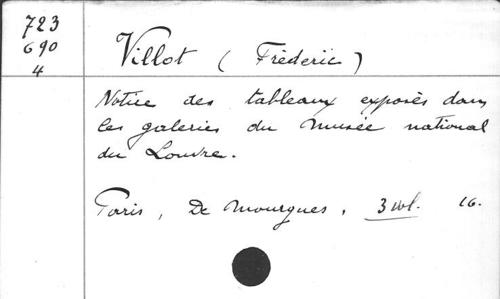 723
690
4
Villot (Fréderic)
Notice des tableaux exposés dans
les galeries du Musée national
du Louvre.
Paris, De Mourgues, 3 vol. 16.